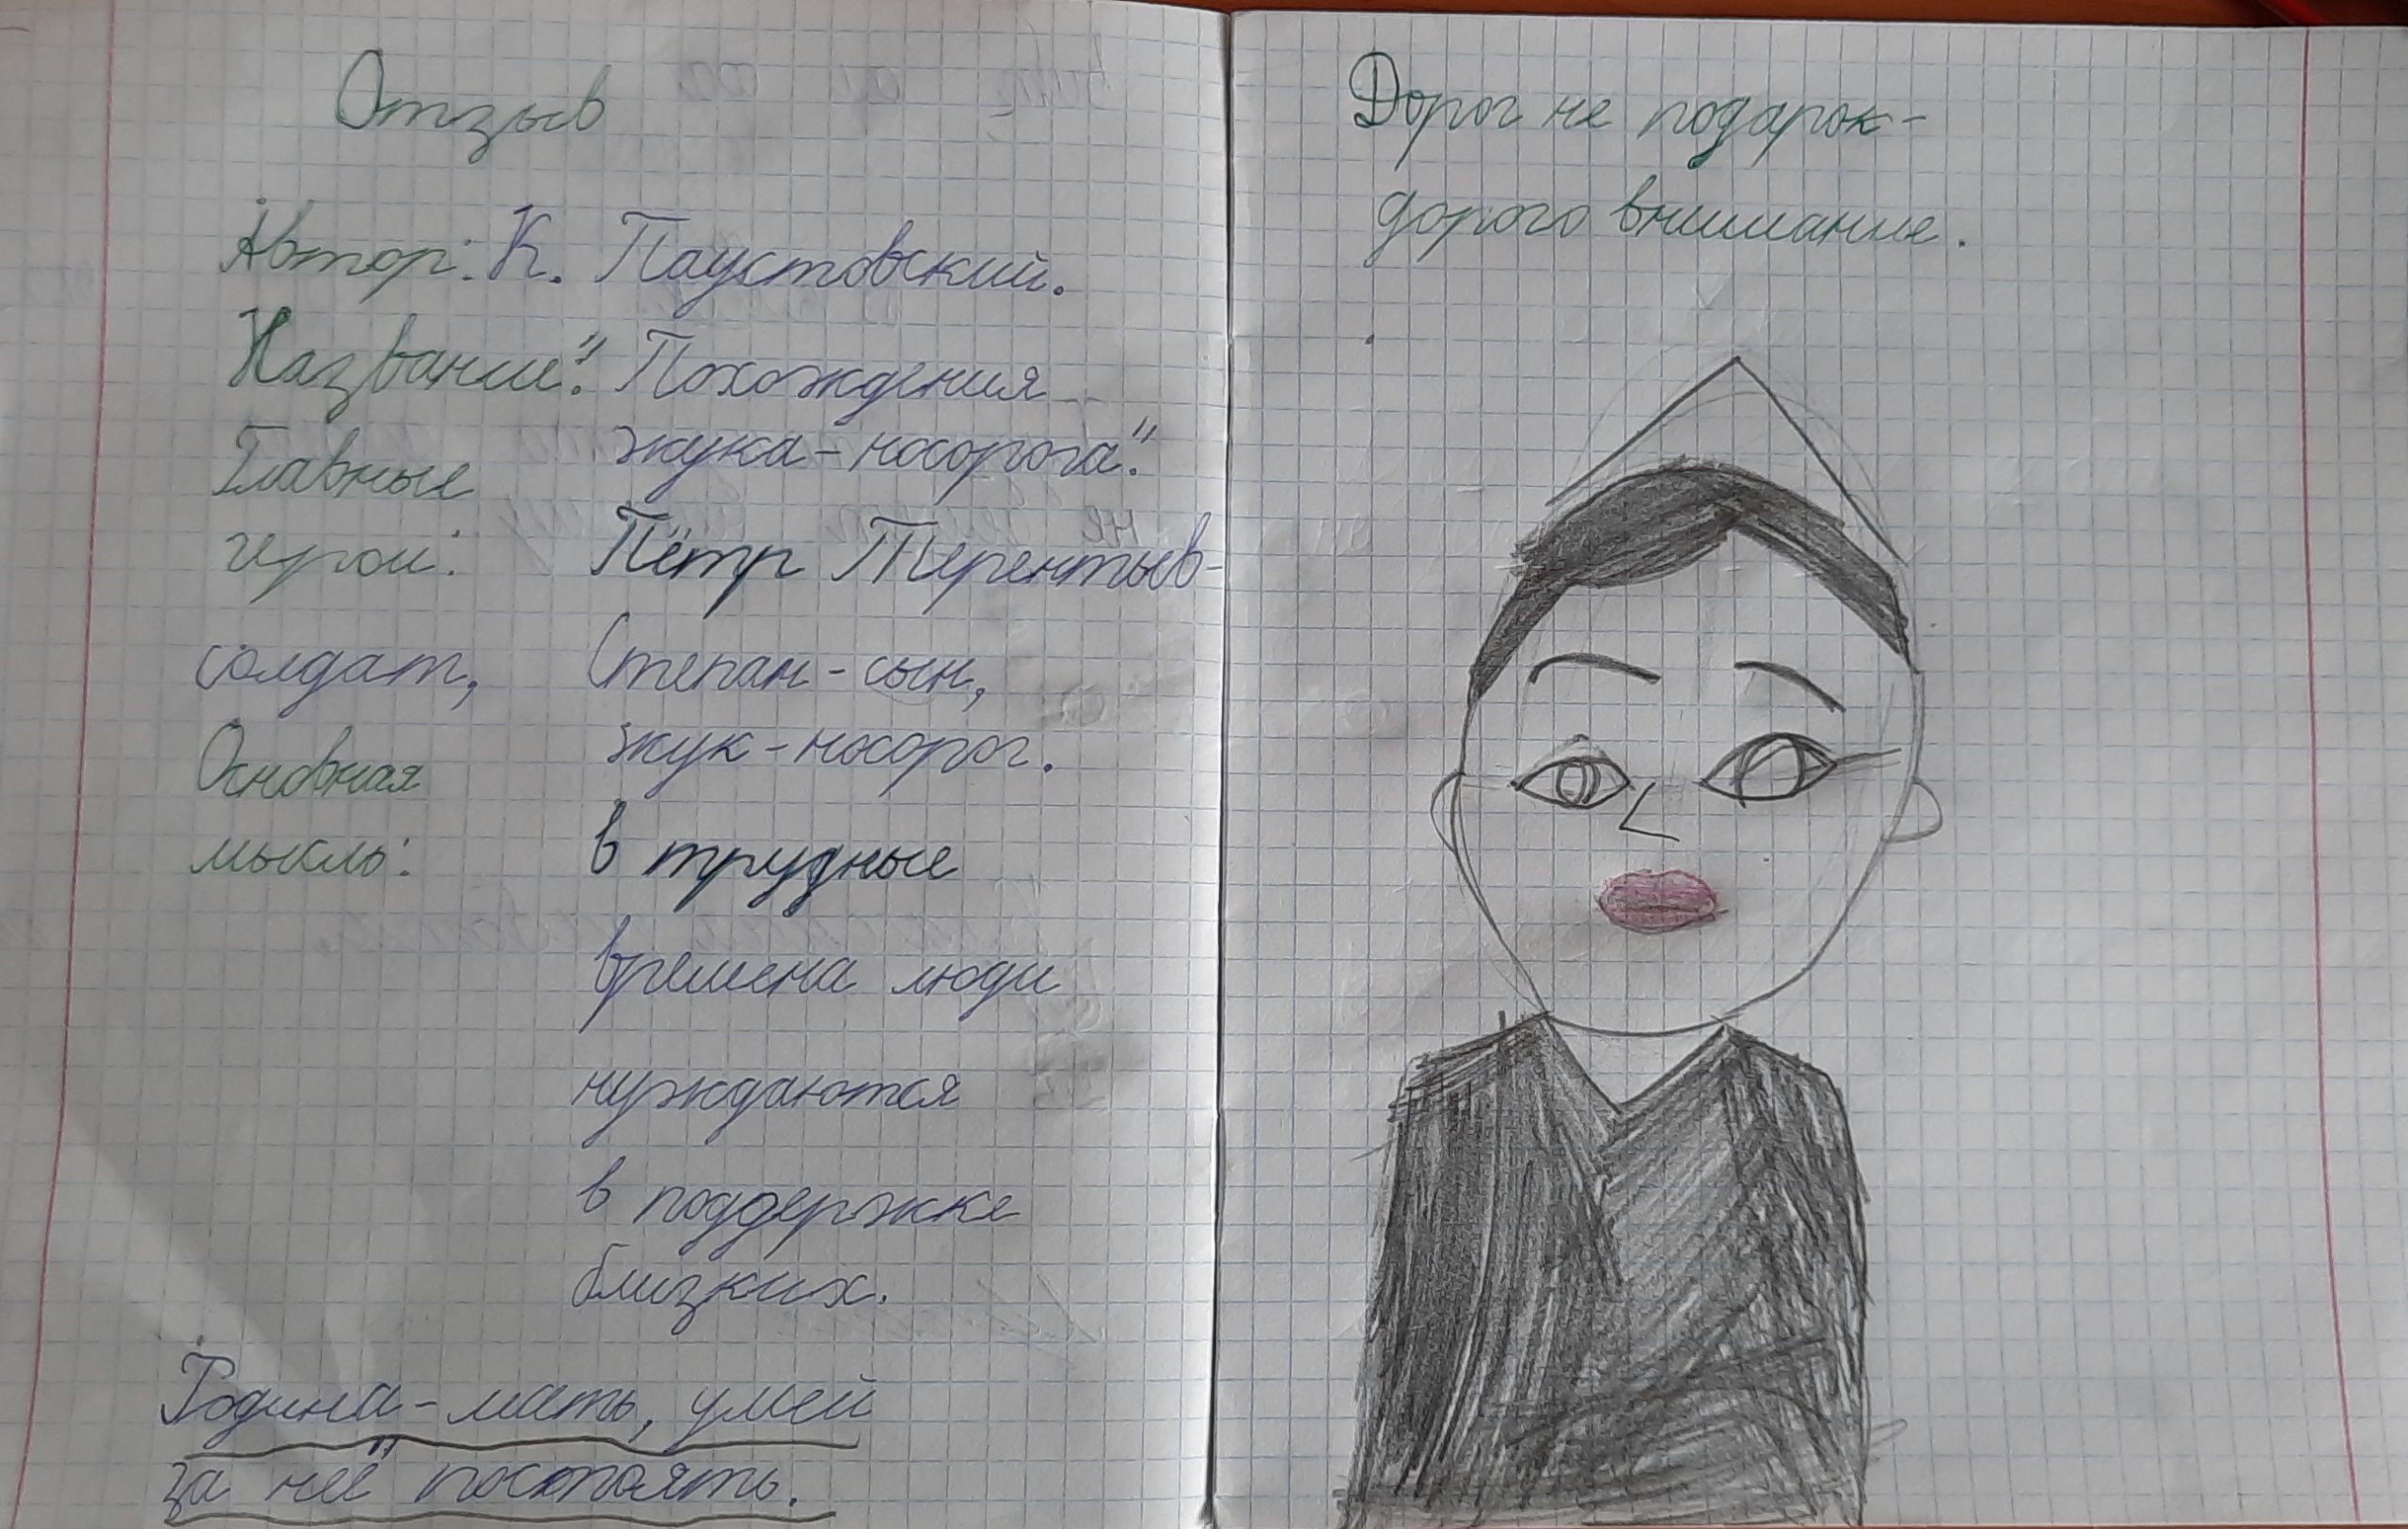 Отзыв
Автор: К. Паустовский.
Название: "Похождения
жука-носорога".
Главные
герои: Пётр Терентьев-
солдат, Степан-сын,
жук-носорог.
Основная
мысль: в трудные
времена люди
нуждаются
в поддержке
близких.
Родина-мать, умей
за неё постоять.
Дорог не подарок-
дорого внимание.